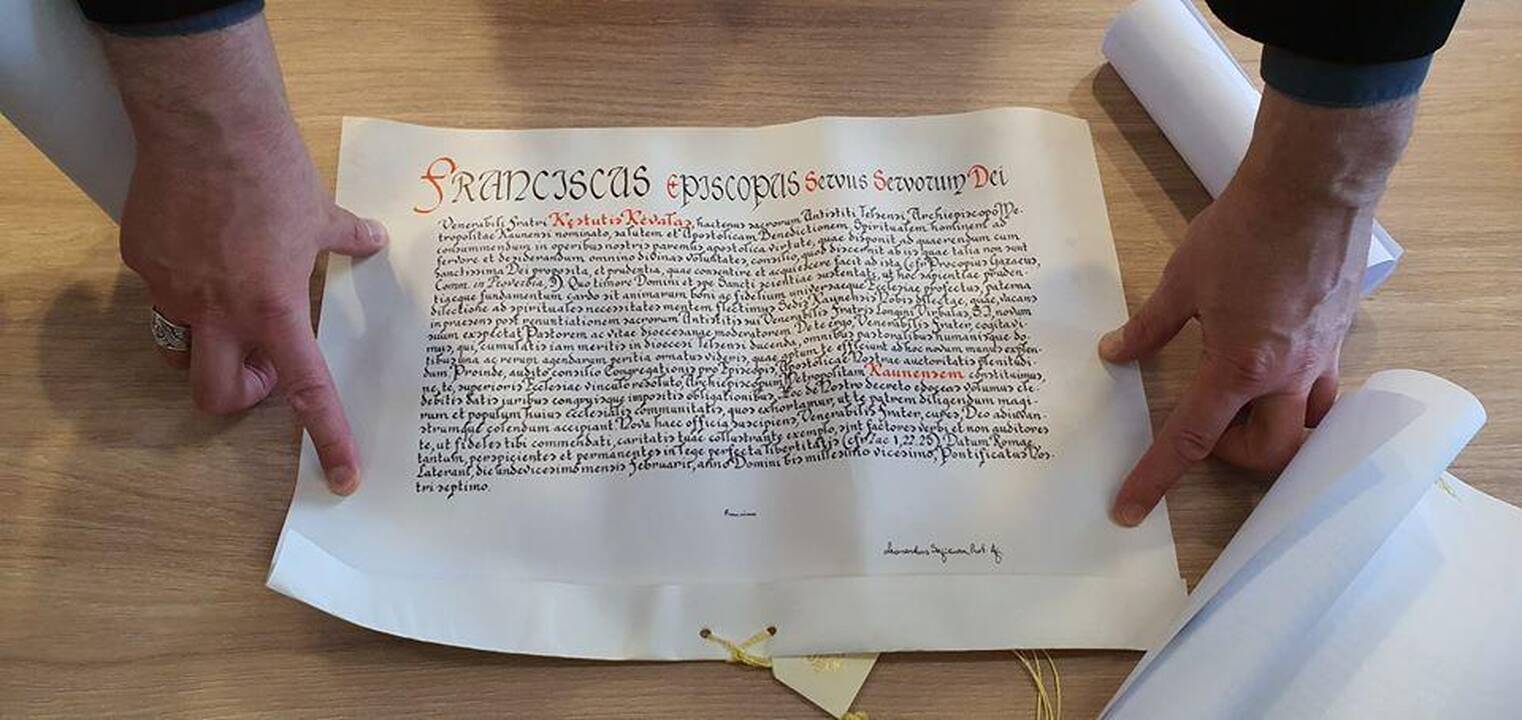 FRANCISCUS EPISCOPUS Servus Servorum Dei
Venerabili Fratri Kęstutis Kėvalas, hactenus sacrorum Antistiti Telsensi, Archiepiscopo Me-
tropolitae Kaunensi nominato, salutem et Apostolicam Benedictionem. Spiritualem hominem ad
consummendum in operibus nostris paremus apostolica virtute, quae disponit ad quaerendum cum
fervore et desiderandum omnino divinas voluntates, consilio, quod discernit ab iis quae talia non sunt
sanctissima Dei proposita, et prudentia, quae consentire et acquiescere facit ad ista (cfr Procopius Gazaeus,
Comm. in Proverbia, 9). Quo timore Domini et spe Sancti scientiae sustentati, ut hoc sapientiae pruden-
tiaeque fundamentum cardo sit animarum boni ac fidelium universaeque Ecclesiae profectus, paterna
dilectione ad spirituales necessitates mentem flectimus Sedis Kaunensis Nobis dilectae, quae, vacans
in praesens post renuntiationem sacrorum Antistitis sui Venerabilis Fratris Longini Virbalas, S.I., novum
suum exspectat Pastorem ac vitae dioecesanae moderatorem. De te ergo, Venerabilis Frater, cogitavi-
mus, qui, cumulatis iam meritis in dioecesi Telsensi ducenda, omnibus pastoralibus humanisque do-
tibus una ac rerum agendarum peritia ornatus videris, quae aptum te efficiunt ad hoc novum munus explen-
dum. Proinde, audito consilio Congregationis pro Episcopis, Apostolicae Nostrae auctoritatis plenitudi-
ne, te, superioris Ecclesiae vinculo resoluto, Archiepiscopum Metropolitam Kaunensem constituimus,
debitis datis juribus congruisque impositis obligationibus. Hoc de Nostro decreto edoceas volumus cle-
rum et populum huius ecclesialis communitatis, quos exhortamur, ut te patrem diligendum magi-
strumque colendum accipiant. Nova haec officia suscipiens, Venerabilis Frater, cures, Deo adiuvan-
te, ut fideles tibi commendati, caritatis tuae collustrante exemplo, sint factores verbi et non auditores
tantum, perspicientes et permanentes in lege perfecta libertatis (cfr Iac 1,22.25). Datum Romae,
Laterani, die undevicesimo mensis Februarii, anno Domini bis millesimo vicesimo, Pontificatus Nos-
tri septimo.
Franciscus
Leonardus Sapienza, Prot. Ap.